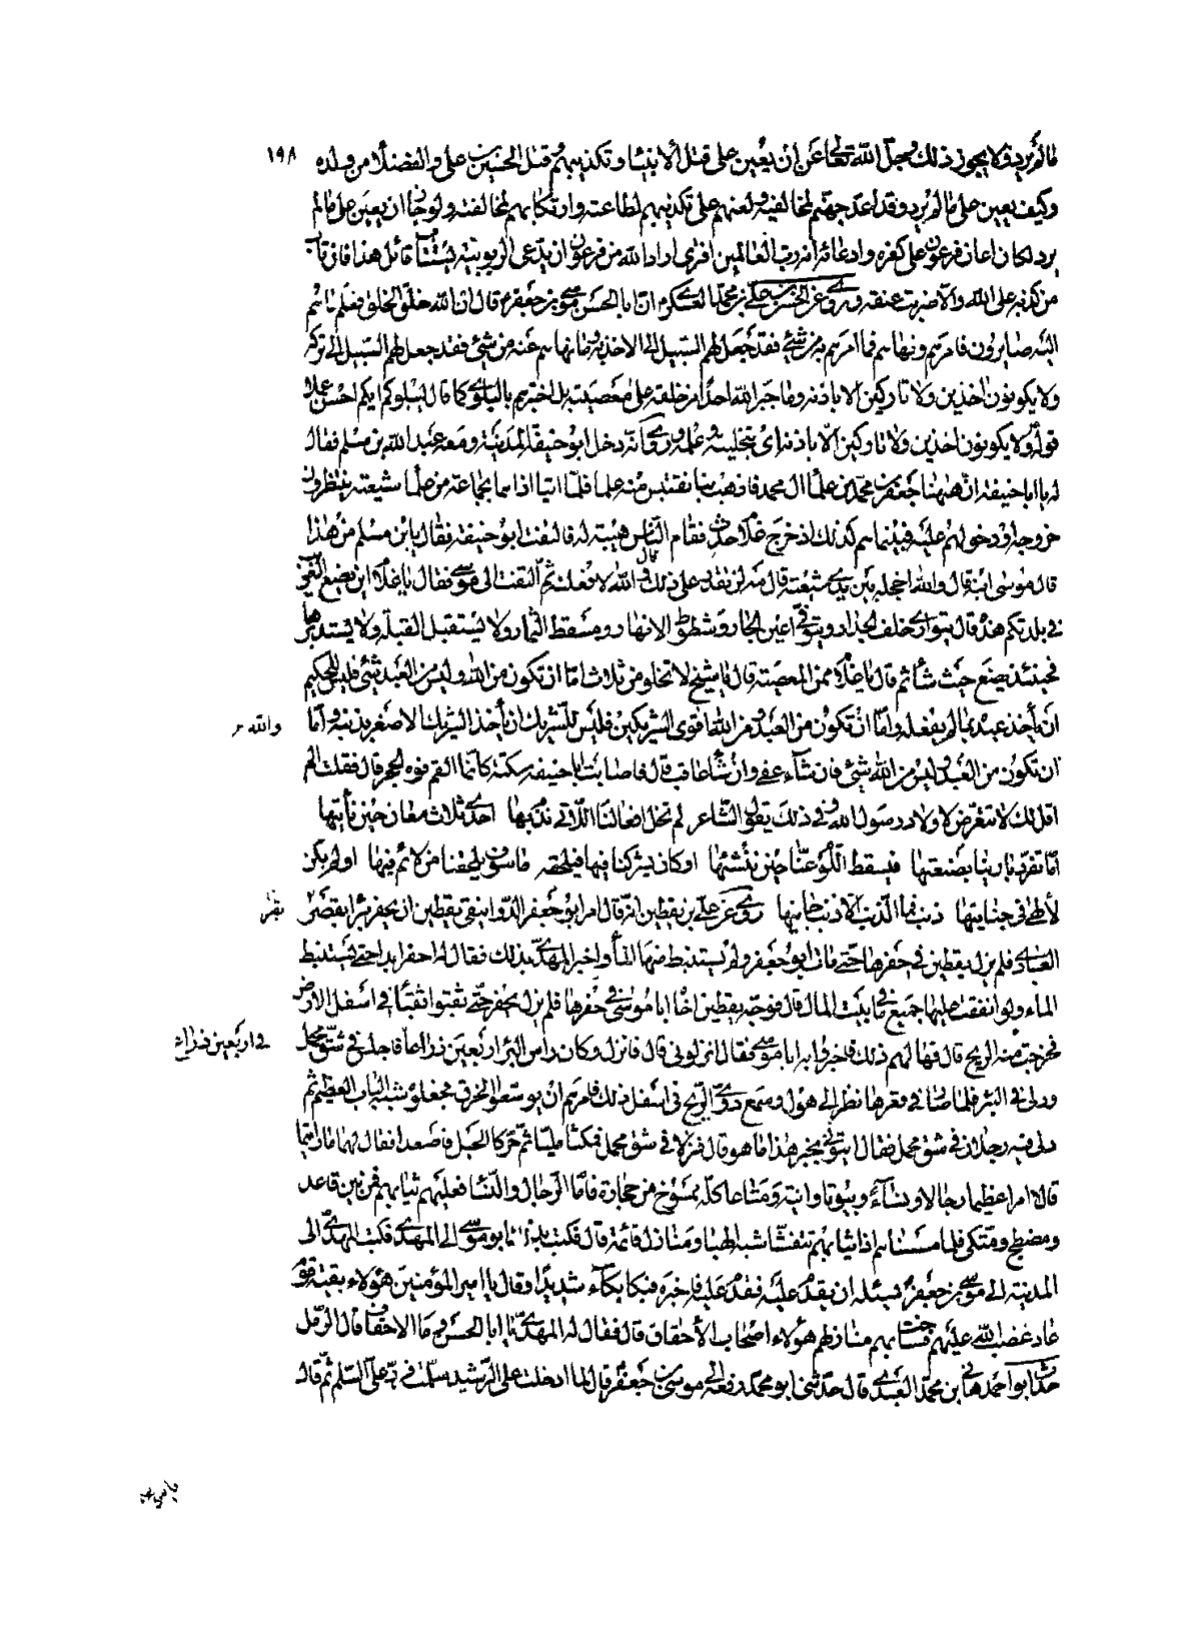 ١٩٨
ما لم يرد ولا يجوز ذلك وجل الله تعالى عن ان يعين على قتل الانبياء وتكذيبهم وقتل الحسين بن علي والفضلاء من ولده
وكيف يعين على ما لم يرد وقد اعد جهنم لمخالفيه ولعنهم على تكذيبهم لطاعته وارتكابهم لمخالفته ولو جاز ان يعين على ما لم
يرد لكان اعان فرعون على كفره وادعائه انه رب العالمين افترى اراد الله من فرعون ان يدعى الربوبية يستتاب قائل هذا فان تاب
من كذبه على الله والا ضربت عنقه وروى عن الحسن بن علي بن محمد العسكري ان ابا الحسن موسى بن جعفر قال ان الله خلق الخلق فعلم ما هم
اليه صايرون فامرهم ونهاهم فما امرهم به من شئ فقد جعل لهم السبيل الى الاخذ به وما نهاهم عنه من شئ فقد جعل لهم السبيل الى تركه
ولا يكونون اخذين ولا تاركين الا باذنه وما جبر الله احدا من خلقه على معصيته بل اختبرهم بالبلوى كما قال ليبلوكم ايكم احسن عملا
قوله ولا يكونون اخذين ولا تاركين الا باذنه اى بتخليته وعلمه وروى انه دخل ابو حنيفة المدينة ومعه عبد الله بن مسلم فقال
له يا ابا حنيفة ان ههنا جعفر بن محمد من علماء ال محمد فاذهب بنا نقتبس منه علما فلما اتيا اذا هما بجماعة من علماء شيعته ينتظرون
خروجه او دخولهم عليه فبينما هم كذلك اذ خرج غلام حدث فقام الناس هيبة له فالتفت ابو حنيفة فقال يا بن مسلم من هذا
قال موسى ابنه قال والله اجبهه بين يدى شيعته قال مه لن تقدر على ذلك قال والله لافعلنه ثم التفت الى موسى فقال يا غلام اين يضع الغريب
في بلدتكم هذه قال يتوارى خلف الجدار ويتوقى اعين الجار وشطوط الانهار ومسقط الثمار ولا يستقبل القبلة ولا يستدبرها
فحينئذ يضع حيث شاء ثم قال يا غلام ممن المعصية قال يا شيخ لا تخلو من ثلاث اما ان تكون من الله وليس من العبد شئ فليس للحكيم
ان يأخذ عبده بما لم يفعله واما ان تكون من العبد ومن الله والله اقوى الشريكين فليس للشريك ان يأخذ الشريك الاصغر بذنبه واما
ان تكون من العبد وليس من الله شئ فان شاء عفى وان شاء عاقب قال فاصابت ابا حنيفة سكتة كانما القم فوه الحجر قال فقلت الم
اقل لك لا تتعرض لاولاد رسول الله وفي ذلك يقول الشاعر لم تخل افعالنا اللاتى نذم بها احدى ثلاث معان حين نأتيها
اما تفرد بارينا بصنعتها فيسقط اللوم عنا حين ننشئها او كان يشركنا فيها فيلحقه ما سوف يلحقنا من لائم فيها او لم يكن
لالهى في جنايتها ذنب فما الذنب الا ذنب جانيها روى عن علي بن يقطين انه قال امر ابو جعفر الدوانيقى يقطين ان يحفر بئرا بقصر
العبادى فلم يزل يقطين في حفرها حتى مات ابو جعفر ولم يستنبط منها الماء واخبر المهدى بذلك فقال له احفر ابدا حتى يستنبط
الماء ولو انفقت عليها جميع ما في بيت المال قال فوجه يقطين اخاه ابا موسى في حفرها فلم يزل يحفر حتى ثقبوا ثقبا في اسفل الارض
فخرجت منه الريح قال فهالهم ذلك فاخبروا به ابا موسى فقال انزلونى قال فانزل وكان رأس البئر اربعين ذراعا في اربعين ذراع فاجلس في شق محمل
ودلى في البئر فلما صار في قعرها نظر الى هول وسمع دوى الريح في اسفل ذلك فامرهم ان يوسعوا الخرق فجعلوه شبه الباب العظيم ثم
دلى فيه رجلان في شق محمل فقال ايتونى بخبر هذا ما هو قال فنزلا في شق محمل فمكثا مليا ثم حركا الحبل فاصعدا فقال لهما ما رايتما
قالا امرا عظيما رجالا ونساء وبيوتا وانية ومتاعا كله ممسوخ من حجارة فاما الرجال والنساء فعليهم ثيابهم فمن بين قاعد
ومضطجع ومتكى فلما مسسناهم اذا ثيابهم تتفشا شبه الهباء ومنازل قائمة قال فكتب بذلك ابو موسى الى المهدى فكتب المهدى الى
المدينة الى موسى بن جعفر يسئله ان يقدم عليه فقدم عليه فاخبره فبكا بكاء شديدا وقال يا امير المؤمنين هؤلاء بقية قوم
عاد غضب الله عليهم فساخت بهم منازلهم هؤلاء اصحاب الاحقاف قال فقال له المهدى يا ابا الحسن وما الاحقاف قال الرمل
حدث ابو احمد هانى بن محمد العبدى قال حدثنى ابو محمد رفعه الى موسى بن جعفر قال لما ادخلت على الرشيد سلمت فرد على السلم ثم قال